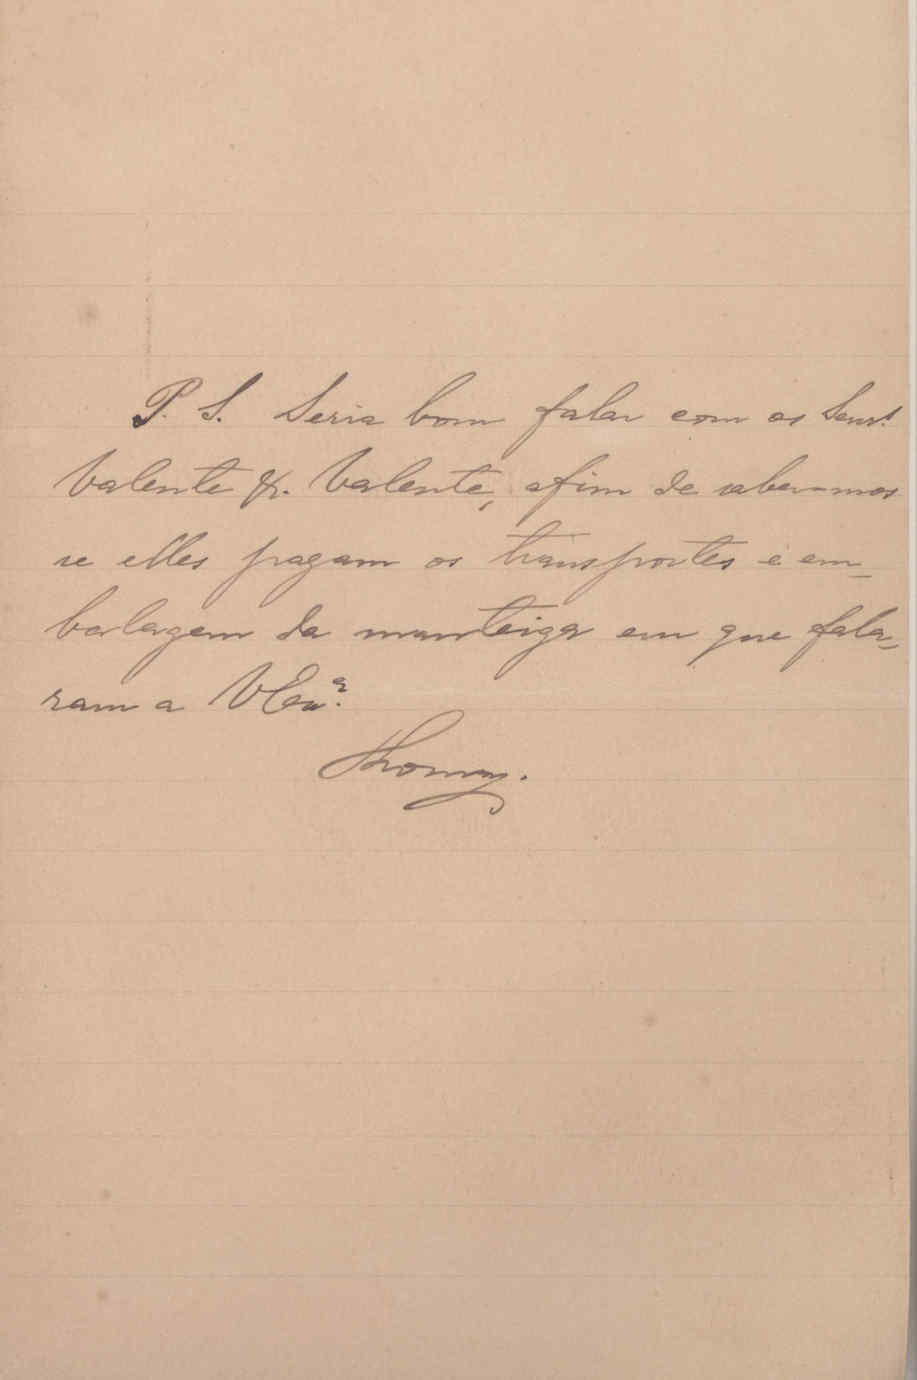 P. S. Seria bom falar com os Senrs.
Valente & Valente, afim de sabermos
se elles pagam os transportes e em-
balagem da manteiga em que fala-
ram a V Exª.
Thomaz.